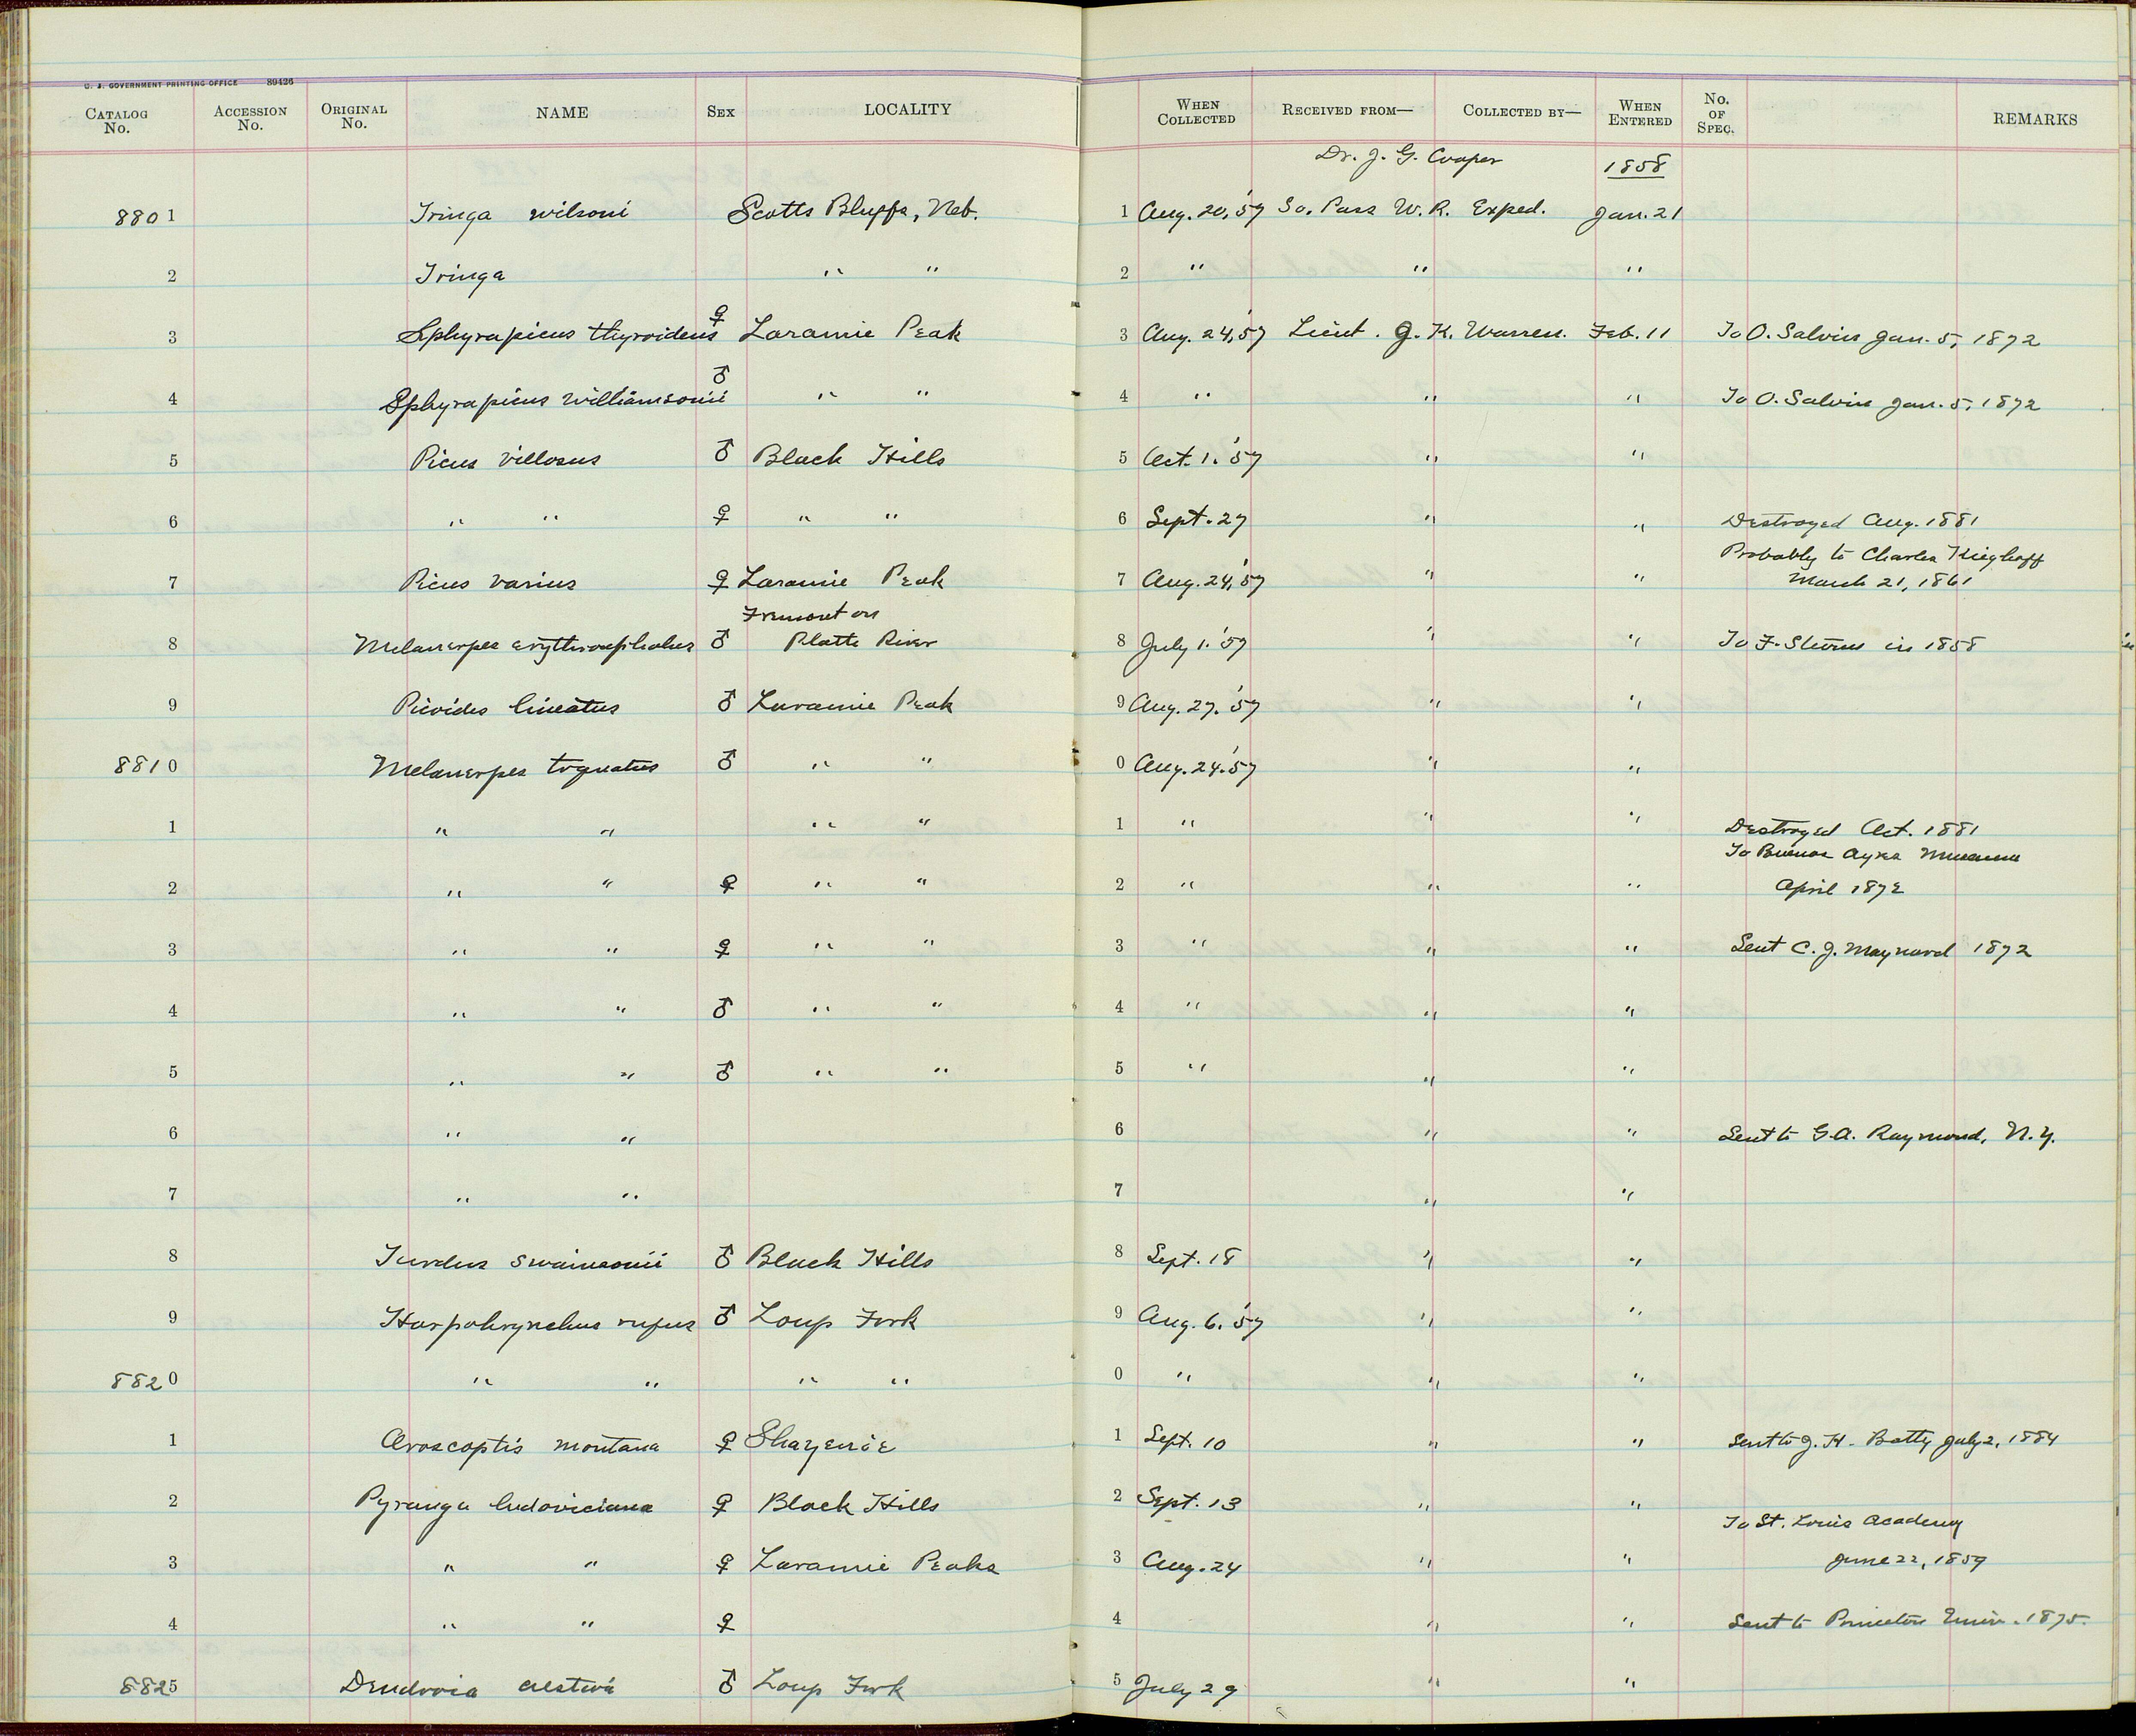 U. S. GOVERNMENT PRINTING OFFICE 89426
CATALOG No. ACCESSION No. ORIGINAL No. NAME SEX LOCALITY WHEN COLLECTED RECEIVED FROM— COLLECTED BY— WHEN ENTERED No. OF SPEC. REMARKS
Dr. J. G. Cooper 1858
8801 Tringa wilsoni Scotts Bluffs, Neb. 1 Aug. 20, '57 So. Pass W. R. Exped. Jan. 21
2 Tringa " " 2 " " "
3 Sphyrapicus thyroideus ♀ Laramie Peak 3 Aug. 24, '57 Lieut. G. K. Warren. Feb. 11 To O. Salvin Jan. 5, 1872
4 Sphyrapicus williamsonii ♂ " " 4 " " " To O. Salvin Jan. 5, 1872
5 Picus villosus ♂ Black Hills 5 Oct. 1. '57 " "
6 " " ♀ " " 6 Sept. 27 " " Destroyed Aug. 1881
Probably to Charles
7 Picus varius ♀ Laramie Peak 7 Aug. 24, '57 " " March 21, 1861
Fremont on
8 Melanerpes erythrocephalus ♂ Platte River 8 July 1. '57 " " To F. in 1858
9 Picoides lineatus ♂ Laramie Peak 9 Aug. 27. '57 " "
8810 Melanerpes torquatus ♂ " " 0 Aug. 24. '57 " "
1 " " " " 1 " " " Destroyed Oct. 1881
To Buenos Ayres Museum
2 " " ♀ " " 2 " " " April 1872
3 " " ♀ " " 3 " " " Sent C. J. Maynard 1872
4 " " ♂ " " 4 " " "
5 " " ♂ " " 5 " " "
6 " " 6 " " Sent to G. A. Raymond, N. Y.
7 " " 7 " "
8 Turdus swainsonii ♂ Black Hills 8 Sept. 18 " "
9 Harpohrynchus rufus ♂ Loup Fork 9 Aug. 6. '57 " "
8820 " " " " 0 " " "
1 Oroscoptis montana ♀ Shayenne 1 Sept. 10 " " Sent to J. H. Batty July 2, 1884
2 Pyranga ludoviciana ♀ Black Hills 2 Sept. 13 " "
To St. Louis Academy
3 " " ♀ Laramie Peaks 3 Aug. 24 " " June 22, 1859
4 " " ♀ 4 " " Sent to Princeton Univ. 1875.
8825 Dendroica aestiva ♂ Loup Fork 5 July 29 " "